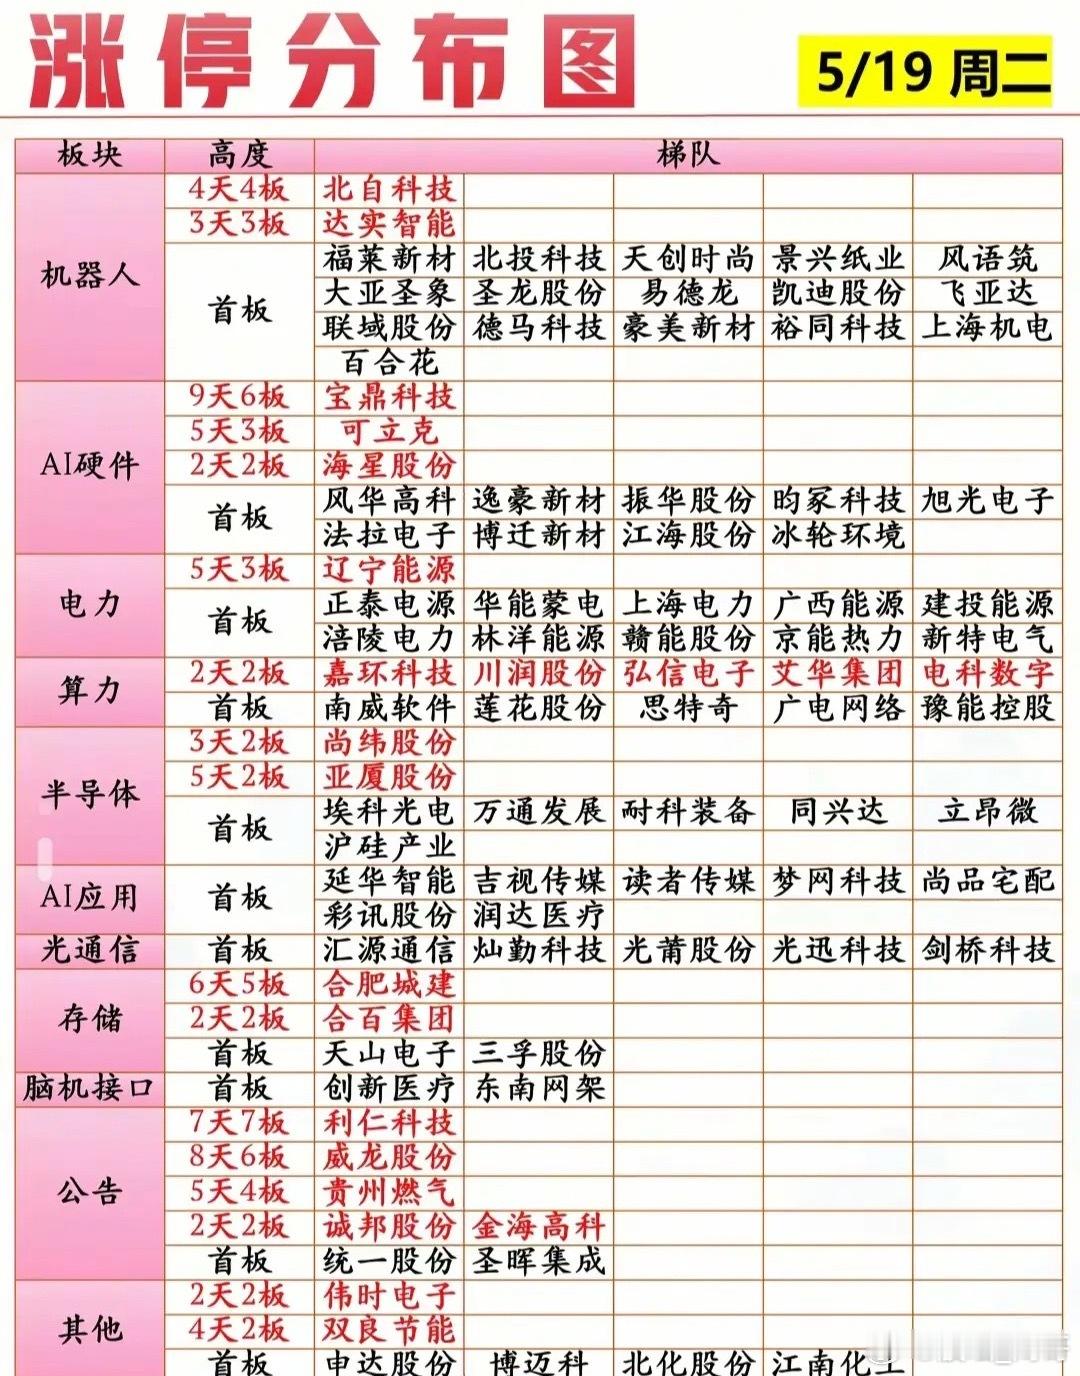 涨停分布图
5/19 周二
板块 高度 梯队
机器人 4天4板 北自科技
3天3板 达实智能
首板 福莱新材 北投科技 天创时尚 景兴纸业 风语筑
大亚圣象 圣龙股份 易德龙 凯迪股份 飞亚达
联域股份 德马科技 豪美新材 裕同科技 上海机电
百合花
AI硬件 9天6板 宝鼎科技
5天3板 可立克
2天2板 海星股份
首板 风华高科 逸豪新材 振华股份 昀冢科技 旭光电子
法拉电子 博迁新材 江海股份 冰轮环境
电力 5天3板 辽宁能源
首板 正泰电源 华能蒙电 上海电力 广西能源 建投能源
涪陵电力 林洋能源 赣能股份 京能热力 新特电气
算力 2天2板 嘉环科技 川润股份 弘信电子 艾华集团 电科数字
首板 南威软件 莲花股份 思特奇 广电网络 豫能控股
半导体 3天2板 尚纬股份
5天2板 亚厦股份
首板 埃科光电 万通发展 耐科装备 同兴达 立昂微
沪硅产业
AI应用 首板 延华智能 吉视传媒 读者传媒 梦网科技 尚品宅配
彩讯股份 润达医疗
光通信 首板 汇源通信 灿勤科技 光莆股份 光迅科技 剑桥科技
存储 6天5板 合肥城建
2天2板 合百集团
首板 天山电子 三孚股份
脑机接口 首板 创新医疗 东南网架
公告 7天7板 利仁科技
8天6板 威龙股份
5天4板 贵州燃气
2天2板 诚邦股份 金海高科
首板 统一股份 圣晖集成
其他 2天2板 伟时电子
4天2板 双良节能
首板 申达股份 博迈科 北化股份 江南化工